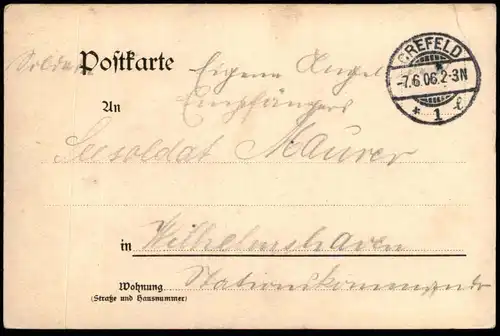 CREFELD
-7.6.06.2-3N
* 1 l
Postkarte
Eigene Angel
Empfängers
An
Seesoldat Maurer
in Wilhelmshaven
Wohnung Stationskommando
(Straße und Hausnummer)